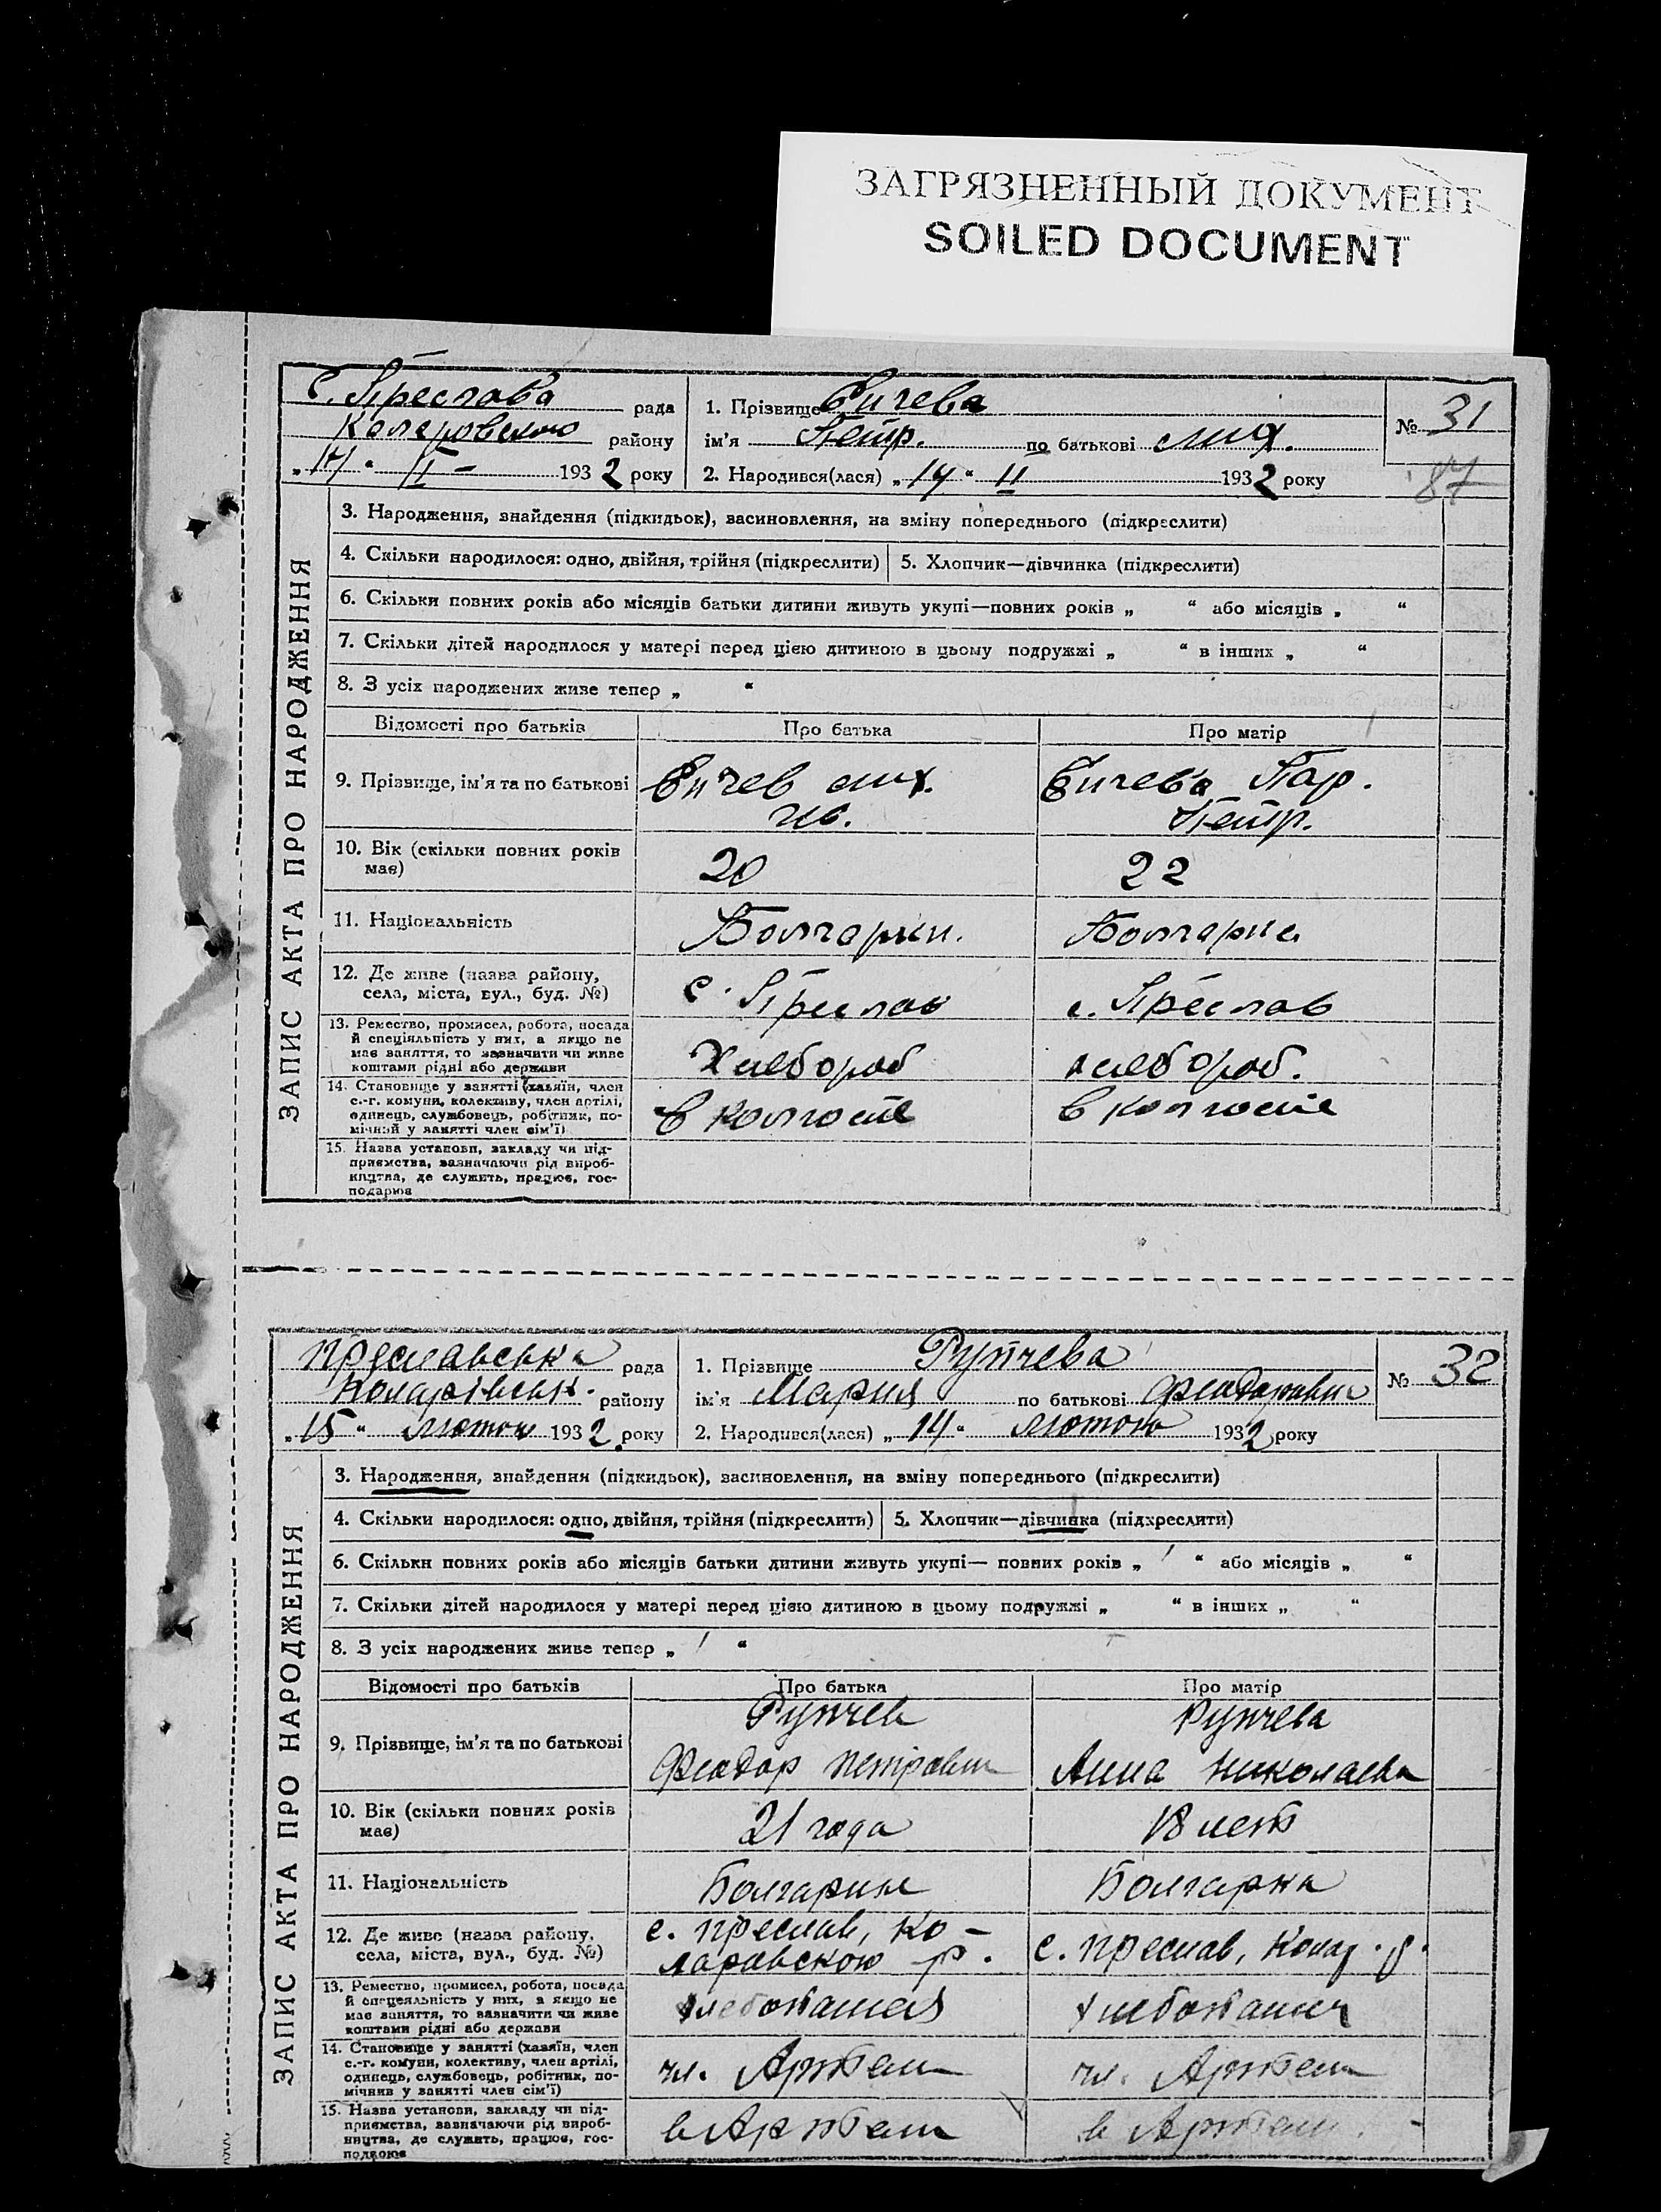 ЗАГРЯЗНЕННЫЙ ДОКУМЕНТ
SOILED DOCUMENT
С. Преслава рада
Коларовского району
„17“ II – 1932 року
1. Прізвище Бичева
ім'я Петр. по батькові Мих.
2. Народився(лася) „14“ II 1932 року
№ 31
87
ЗАПИС АКТА ПРО НАРОДЖЕННЯ
3. Народження, знайдення (підкидьок), засиновлення, на зміну попереднього (підкреслити)
4. Скільки народилося: одно, двійня, трійня (підкреслити) 5. Хлопчик—дівчинка (підкреслити)
6. Скільки повних років або місяців батьки дитини живуть укупі—повних років „ “ або місяців „ “
7. Скільки дітей народилося у матері перед цією дитиною в цьому подружжі „ “ в інших „ “
8. З усіх народжених живе тепер „ “
Відомості про батьків Про батька Про матір
9. Прізвище, ім'я та по батькові Бичев Мих. Бичева Пар.
Ив. Петр.
10. Вік (скільки повних років 20 22
має)
11. Національність Болгарин. Болгарка
12. Де живе (назва району, с. Преслав с. Преслав
села, міста, вул., буд. №)
13. Ремество, промисел, робота, посада
й спеціяльність у них, а якщо не Хлебороб хлебороб.
має заняття, то зазначити чи живе
коштами рідні або держави
14. Становище у занятті (хазяїн, член
с.-г. комуни, колективу, член артілі, в колгоспе в колгоспе
одинець, службовець, робітник, по-
мічний у занятті член сім'ї)
15. Назва установи, закладу чи під-
приємства, зазначаючи рід вироб-
ництва, де служить, працює, гос-
подарює
Преславська рада
Коларівськ. району
„15“ лютого 1932 року
1. Прізвище Рупчева
ім'я Мария по батькові Феодоровна
2. Народився(лася) „14“ лютого 1932 року
№ 32
ЗАПИС АКТА ПРО НАРОДЖЕННЯ
3. Народження, знайдення (підкидьок), засиновлення, на зміну попереднього (підкреслити)
4. Скільки народилося: одно, двійня, трійня (підкреслити) 5. Хлопчик—дівчинка (підкреслити)
6. Скільки повних років або місяців батьки дитини живуть укупі— повних років „ 1 “ або місяців „ “
7. Скільки дітей народилося у матері перед цією дитиною в цьому подружжі „ “ в інших „ “
8. З усіх народжених живе тепер „ 1 “
Відомості про батьків Про батька Про матір
Рупчев Рупчева
9. Прізвище, ім'я та по батькові
Феодор Петрович Анна Николаевн
10. Вік (скільки повних років 21 года 18 лет
має)
11. Національність Болгарин Болгарка
12. Де живе (назва району, с. Преслав, Ко- с. Преслав, Колар. р.
села, міста, вул., буд. №) ларовского р.
13. Ремество, промисел, робота, посада
й спецеяльність у них, а якщо не хлебопашец хлебопашец
має заняття, то зазначити чи живе
коштами рідні або держави
14. Становище у занятті (хазяїн, член
с.-г. комуни, колективу, член артілі, чл. Артели чл. Артели
одинець, службовець, робітник, по-
мічнив у занятті член сім'ї)
15. Назва установи, закладу чи під-
приємства, зазначаючи рід вироб- в Артели в Артели
ництва, де служить, працює, гос-
подарює